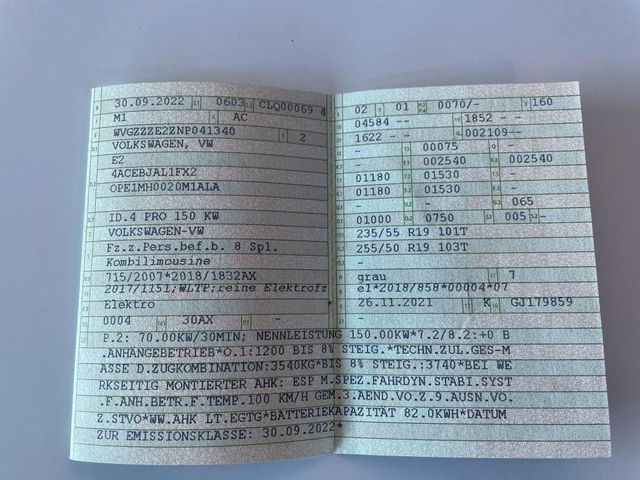 30.09.2022 0603 CLQ00069 4
M1 AC
WVGZZZE2ZNP041340 2
VOLKSWAGEN, VW
E2
4ACEBJAL1FX2
OPE1MH0020M1ALA
ID.4 PRO 150 KW
VOLKSWAGEN-VW
Fz.z.Pers.bef.b. 8 Spl.
Kombilimousine
715/2007*2018/1832AX
2017/1151;WLTP;reine Elektrofz
Elektro
0004 30AX -
02 01 0070/- 160
04584 -- 1852 --
1622 -- 002109--
- 00075 -
- 002540 002540
01180 01530 -
01180 01530 -
- - 065
01000 0750 005 -
235/55 R19 101T
255/50 R19 103T
-
grau 7
e1*2018/858*00004*07
26.11.2021 K GJ179859
-
P.2: 70.00KW/30MIN; NENNLEISTUNG 150.00KW*7.2/8.2:+0 B
.ANHÄNGEBETRIEB*O.1:1200 BIS 8% STEIG.*TECHN.ZUL.GES-M
ASSE D.ZUGKOMBINATION:3540KG*BIS 8% STEIG.:3740*BEI WE
RKSEITIG MONTIERTER AHK: ESP M.SPEZ.FAHRDYN.STABI.SYST
.F.ANH.BETR.F.TEMP.100 KM/H GEM.3.AEND.VO.Z.9.AUSN.VO.
Z.STVO*WW.AHK LT.EGTG*BATTERIEKAPAZITÄT 82.0KWH*DATUM
ZUR EMISSIONSKLASSE: 30.09.2022*